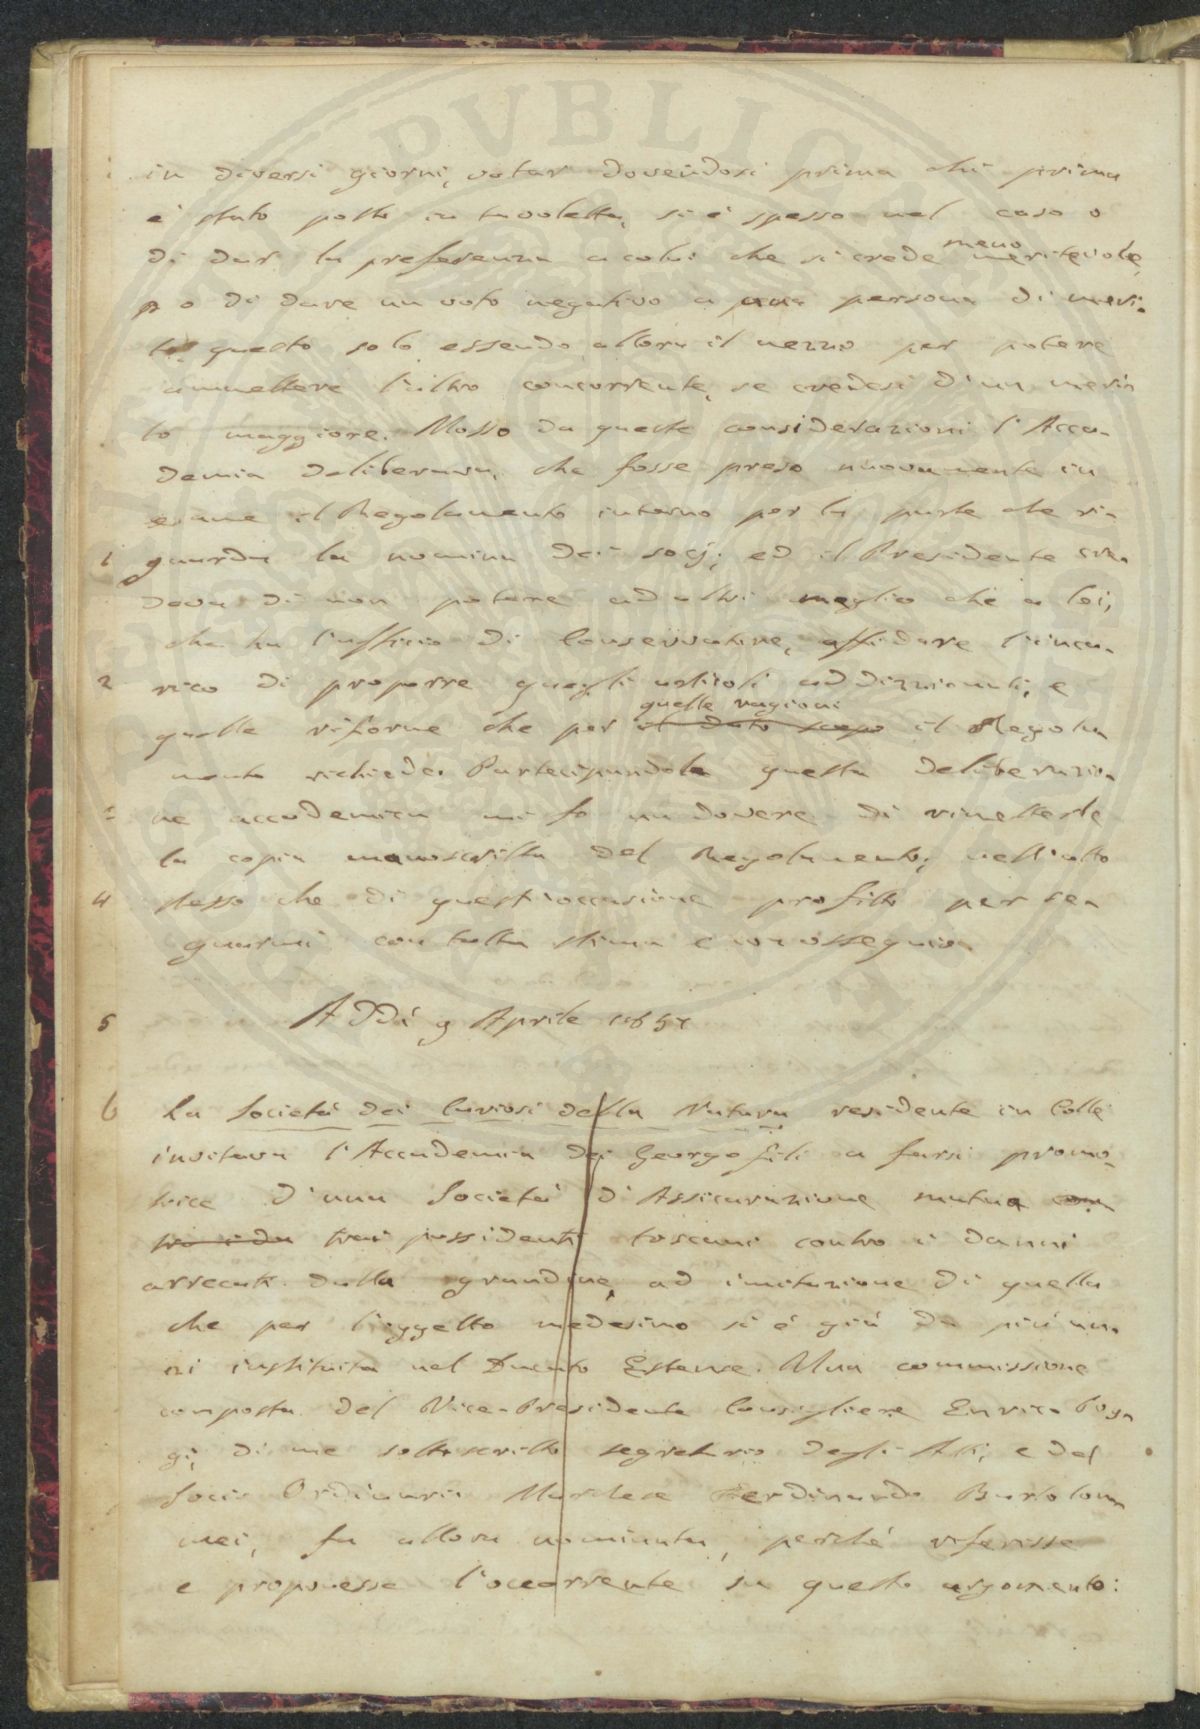 in diversi giorni, votar dovendosi prima chi prima
è stato posto in tavoletta, si è spesso nel caso o
di dar la preferenza a colui che si crede meno meritevole,
o di dare un voto negativo a una persona di meri-
to, questo solo essendo allora il mezzo per potere
ammettere l'altro concorrente, se credesi d'un meri-
to maggiore. Mosso da queste considerazioni l'Acca-
demia deliberava, che fosse preso nuovamente in
esame il Regolamento interno per la parte che ri-
guarda la nomina dei socj; ed il Presidente cre-
deva di non potere ad altri meglio che a lei,
che ha l'ufficio di Conservatore, affidare l'inca-
rico di proporre quegli articoli addizionali, e
quelle riforme che per il dato scopo quelle ragioni il Regola
mento richiede. Partecipandole questa deliberazio-
ne accademica mi fo un dovere di rimetterle
la copia manoscritta del Regolamento, nell'atto
stesso che di quest'occasione profitto per se-
gnarmi con tutta stima e con ossequio.
Addì 9 Aprile 1857
La Società dei Curiosi della Natura residente in Colle
invitava l'Accademia dei Georgofili a farsi promo-
trice d'una Società d'Assicurazione mutua
trai possidenti toscani contro i danni
arrecati dalla grandine, ad imitazione di quella
che per l'oggetto medesimo si è già da più an-
ni instituita nel Ducato Estense. Una commissione
composta del Vice-Presidente Consigliere Enrico Pog-
gi, di me sottoscritto segretario degli Atti, e del
Socio Ordinario Marchese Ferdinando Bartolom
mei, fu allora nominata, perché riferisse
e proponesse l'occorrente su questo argomento:
1
2
4
5
6
PVBLIC